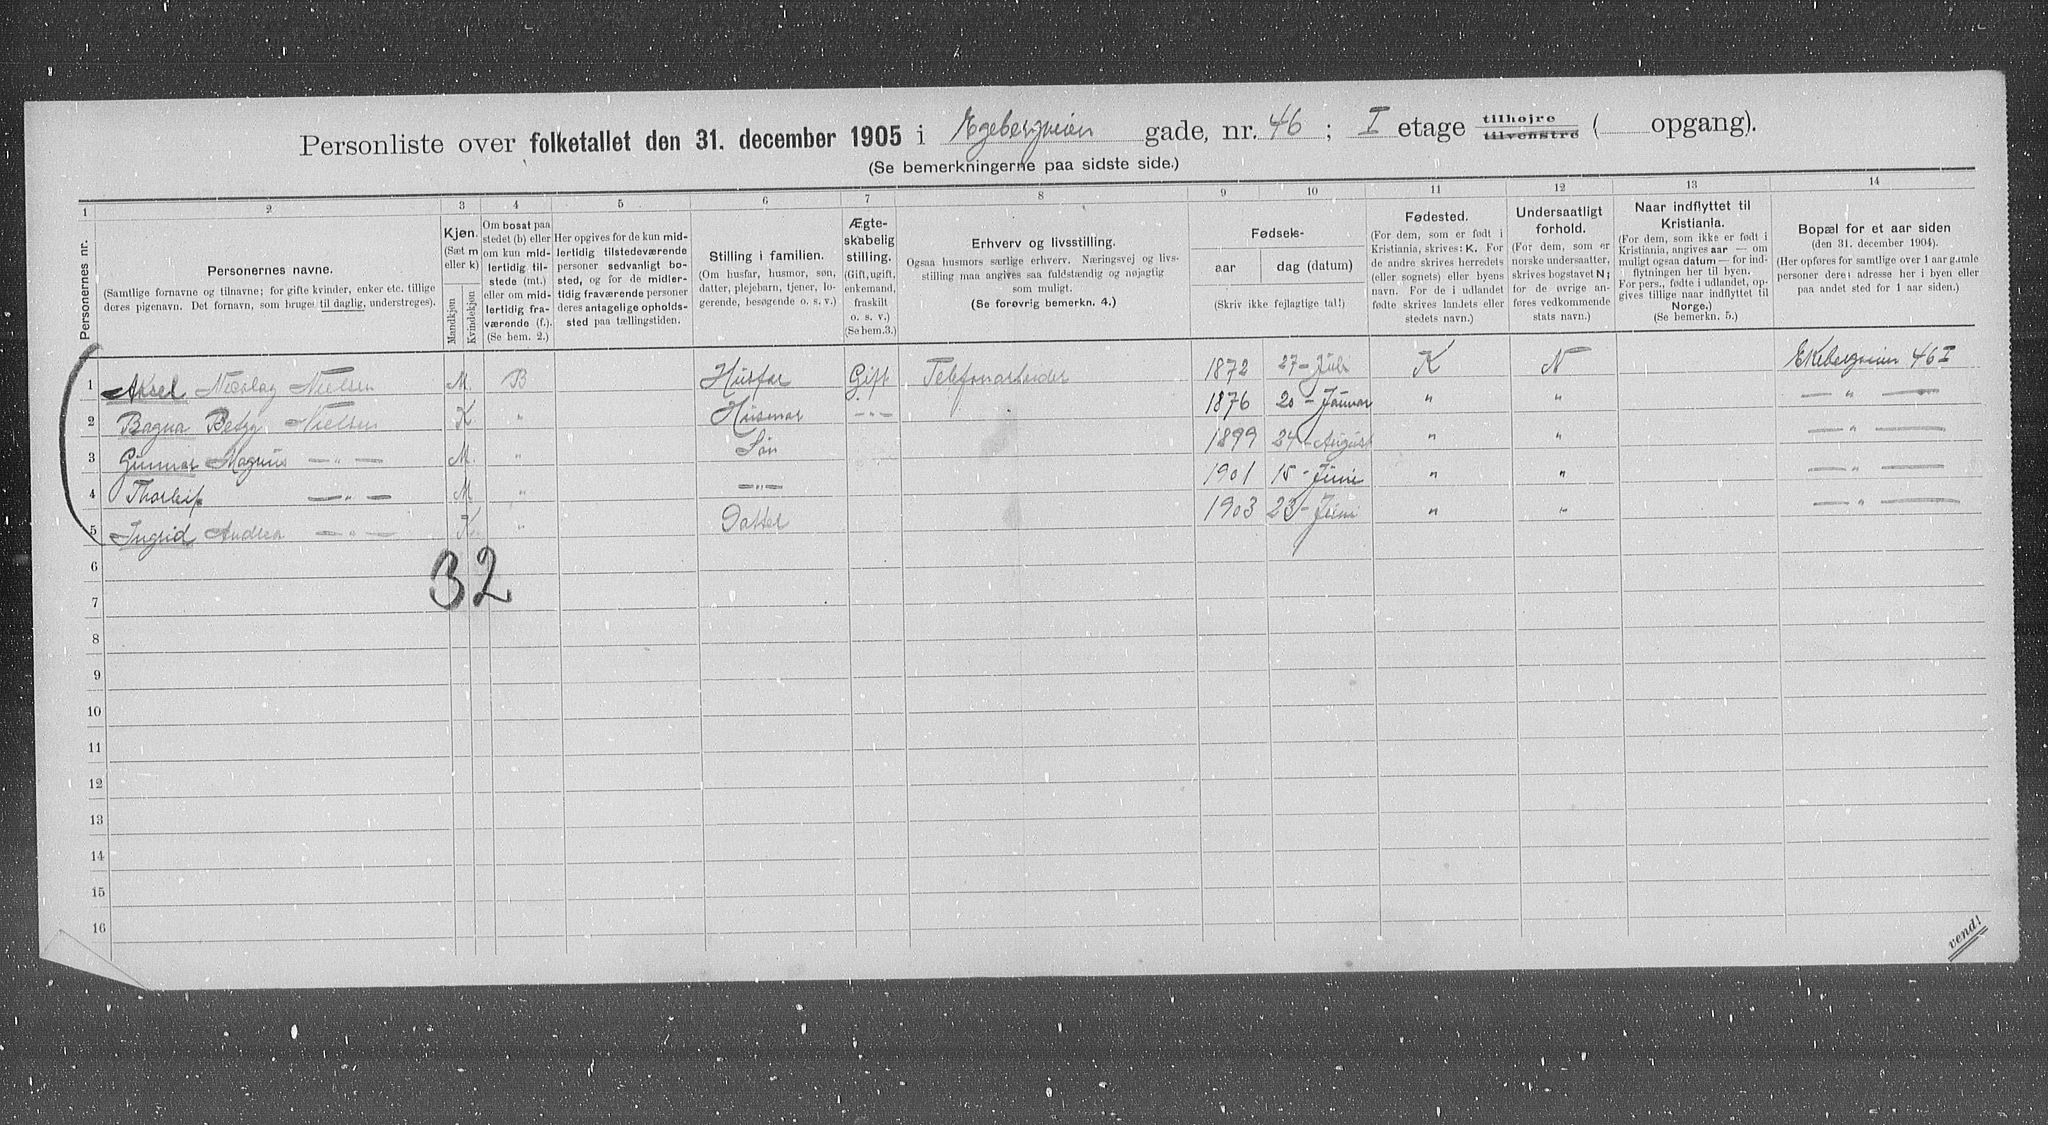 Personliste over folketallet den 31. december 1905 i Egebergveien gade, nr. 46 ; I etage tilhøjre tilvenstre ( opgang).
(Se bemerkningerne paa sidste side.)
1 2 3 4 5 6 7 8 9 10 11 12 13 14
Personernes nr.
Personernes navne.
(Samtlige fornavne og tilnavne; for gifte kvinder, enker etc. tillige
deres pigenavn. Det fornavn, som bruges til daglig, understreges).
Kjøn.
(Sæt m
eller k)
Mandkjøn
Kvindekjøn
Om bosat paa
stedet (b) eller
om kun mid-
lertidig til-
stede (mt.)
eller om mid-
lertidig fra-
værende (f.).
(Se bem. 2.)
Her opgives for de kun mid-
lertidig tilstedeværende
personer sedvanligt bo-
sted, og for de midler-
tidig fraværende personer
deres antagelige opholds-
sted paa tællingstiden.
Stilling i familien.
(Om husfar, husmor, søn,
datter, plejebarn, tjener, lo-
gerende, besøgende o. s. v.)
Ægte-
skabelig
stilling.
(Gift, ugift,
enkemand,
fraskilt
o. s. v.)
(Se bem. 3.)
Erhverv og livsstilling.
Ogsaa husmors særlige erhverv. Næringsvej og livs-
stilling maa angives saa fuldstændig og nøjagtig
som muligt.
(Se forøvrig bemerkn. 4.)
Fødsels-
aar
dag (datum)
(Skriv ikke fejlagtige tal!)
Fødested.
(For dem, som er født i
Kristiania, skrives: K. For
de andre skrives herredets
(eller sognets) eller byens
navn. For de i udlandet
fødte skrives landets eller
stedets navn.)
Undersaatligt
forhold.
(For dem, som er
norske undersaatter,
skrives bogstavet N;
for de øvrige an-
føres vedkommende
stats navn.)
Naar indflyttet til
Kristiania.
(For dem, som ikke er født i
Kristiania, angives aar — om
muligt ogsaa datum — for ind-
flytningen her til byen.
For pers., fødte i udlandet, op-
gives tillige naar indflyttet til
Norge.)
(Se bemerkn. 5.)
Bopæl for et aar siden
(den 31. december 1904).
(Her opføres for samtlige over 1 aar gamle
personer deres adresse her i byen eller
paa andet sted for 1 aar siden.)
1 Aksel Nicolay Nielsen M. B Husfar Gift Telefonarbeider 1872 27 - Juli K N Ekebergveien 46 I
2 Bagna Betzy Nielsen K. " Husmor — " — 1876 20 - Januar " " — " —
3 Gunnar Magnus — " — M. " Søn 1899 24 - August " " — " —
4 Thorleif — " — M " — " — 1901 15 - Juni " " — " —
5 Ingrid Andrea — " — K. " Datter 1903 23 - Juni " " — " —
32
6
7
8
9
10
11
12
13
14
15
16
vend!